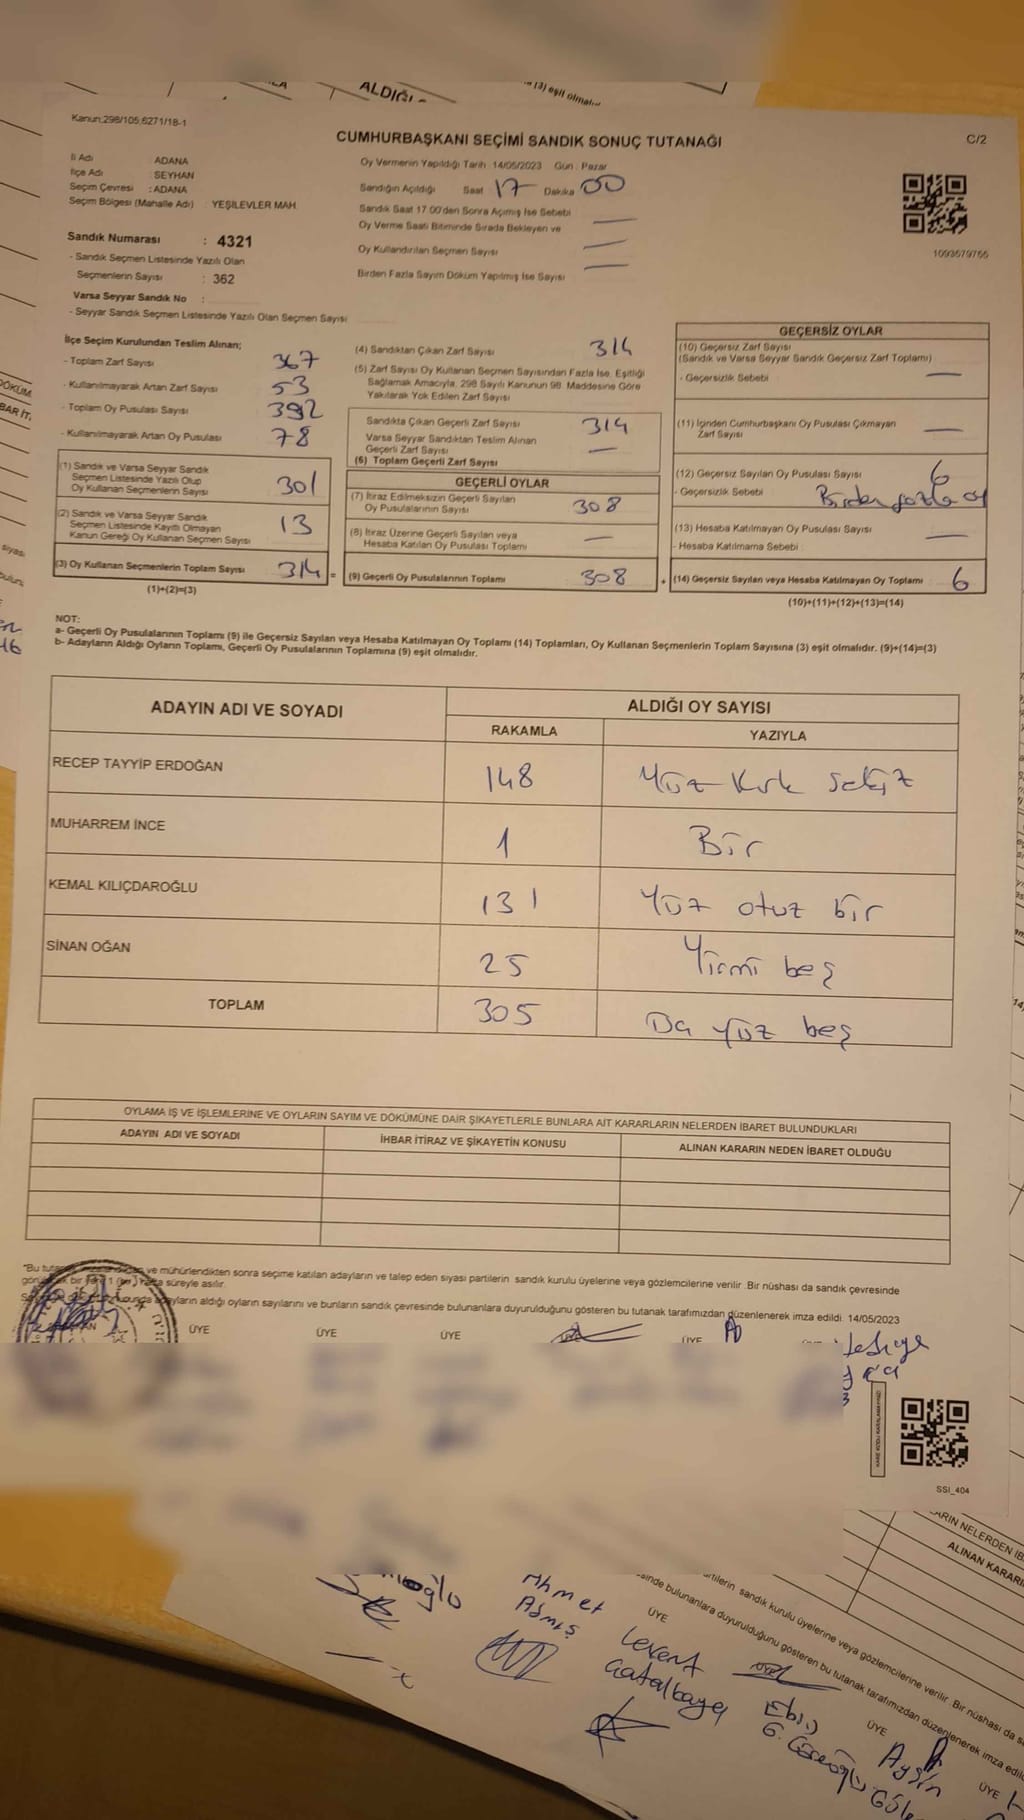 ALDIĞI
(3) eşit olmalı
Kanun:298/105,6271/18-1
CUMHURBAŞKANI SEÇİMİ SANDIK SONUÇ TUTANAĞI
C/2
İl Adı ADANA
İlçe Adı : SEYHAN
Seçim Çevresi : ADANA
Seçim Bölgesi (Mahalle Adı) : YEŞİLEVLER MAH
Sandık Numarası : 4321
- Sandık Seçmen Listesinde Yazılı Olan
Seçmenlerin Sayısı : 362
Varsa Seyyar Sandık No :
- Seyyar Sandık Seçmen Listesinde Yazılı Olan Seçmen Sayısı
Oy Vermenin Yapıldığı Tarih: 14/05/2023 Gün: Pazar
Sandığın Açıldığı Saat 17 Dakika 00
Sandık Saat 17:00'den Sonra Açımış İse Sebebi
Oy Verme Saati Bitiminde Sırada Bekleyen ve
Oy Kullandırılan Seçmen Sayısı
Birden Fazla Sayım Döküm Yapılmış İse Sayısı
1093579755
İlçe Seçim Kurulundan Teslim Alınan;
- Toplam Zarf Sayısı 367
- Kullanılmayarak Artan Zarf Sayısı 53
- Toplam Oy Pusulası Sayısı 392
- Kullanılmayarak Artan Oy Pusulası 78
(1) Sandık ve Varsa Seyyar Sandık
Seçmen Listesinde Yazılı Olup
Oy Kullanan Seçmenlerin Sayısı 301
(2) Sandık ve Varsa Seyyar Sandık
Seçmen Listesinde Kayıtlı Olmayan
Kanun Gereği Oy Kullanan Seçmen Sayısı 13
(3) Oy Kullanan Seçmenlerin Toplam Sayısı 314 =
(1)+(2)=(3)
(4) Sandıktan Çıkan Zarf Sayısı 314
(5) Zarf Sayısı Oy Kullanan Seçmen Sayısından Fazla İse, Eşitliği
Sağlamak Amacıyla, 298 Sayılı Kanunun 98. Maddesine Göre
Yakılarak Yok Edilen Zarf Sayısı
Sandıkta Çıkan Geçerli Zarf Sayısı 314
Varsa Seyyar Sandıktan Teslim Alınan
Geçerli Zarf Sayısı
(6) Toplam Geçerli Zarf Sayısı
GEÇERLİ OYLAR
(7) İtiraz Edilmeksizin Geçerli Sayılan
Oy Pusulalarının Sayısı 308
(8) İtiraz Üzerine Geçerli Sayılan veya
Hesaba Katılan Oy Pusulası Toplamı
(9) Geçerli Oy Pusulalarının Toplamı 308 +
GEÇERSİZ OYLAR
(10) Geçersiz Zarf Sayısı
(Sandık ve Varsa Seyyar Sandık Geçersiz Zarf Toplamı)
- Geçersizlik Sebebi
(11) İçinden Cumhurbaşkanı Oy Pusulası Çıkmayan
Zarf Sayısı
(12) Geçersiz Sayılan Oy Pusulası Sayısı 6
- Geçersizlik Sebebi : Birden fazla oy
(13) Hesaba Katılmayan Oy Pusulası Sayısı
- Hesaba Katılmama Sebebi :
(14) Geçersiz Sayılan veya Hesaba Katılmayan Oy Toplamı 6
(10)+(11)+(12)+(13)=(14)
NOT:
a- Geçerli Oy Pusulalarının Toplamı (9) ile Geçersiz Sayılan veya Hesaba Katılmayan Oy Toplamı (14) Toplamları, Oy Kullanan Seçmenlerin Toplam Sayısına (3) eşit olmalıdır. (9)+(14)=(3)
b- Adayların Aldığı Oyların Toplamı, Geçerli Oy Pusulalarının Toplamına (9) eşit olmalıdır.
ADAYIN ADI VE SOYADI
ALDIĞI OY SAYISI
RAKAMLA YAZIYLA
RECEP TAYYİP ERDOĞAN 148 Yüz Kırk Sekiz
MUHARREM İNCE 1 Bir
KEMAL KILIÇDAROĞLU 131 Yüz otuz bir
SİNAN OĞAN 25 Yirmi beş
TOPLAM 305 yüz beş
OYLAMA İŞ VE İŞLEMLERİNE VE OYLARIN SAYIM VE DÖKÜMÜNE DAİR ŞİKAYETLERLE BUNLARA AİT KARARLARIN NELERDEN İBARET BULUNDUKLARI
ADAYIN ADI VE SOYADI İHBAR İTİRAZ VE ŞİKAYETİN KONUSU ALINAN KARARIN NEDEN İBARET OLDUĞU
"Bu ve mühürlendikten sonra seçime katılan adayların ve talep eden siyasi partilerin sandık kurulu üyelerine veya gözlemcilerine verilir. Bir nüshası da sandık çevresinde
bir yere 1 hafta süreyle asılır.
adayların aldığı oyların sayılarını ve bunların sandık çevresinde bulunanlara duyurulduğunu gösteren bu tutanak tarafımızdan düzenlenerek imza edildi. 14/05/2023
ÜYE ÜYE ÜYE ÜYE ÜYE
KARE KODU KARALAMAYINIZ!
SSI_404
ARIN NELERDEN İB
ALINAN KARARI
artilerin sandık kurulu üyelerine veya gözlemcilerine verilir. Bir nüshası da s
sinde bulunanlara duyurulduğunu gösteren bu tutanak tarafımızdan düzenlenerek imza edild
oğlu
Ahmet
ÜYE
Levent
ÜYE
ÜYE
Aygin
ÜYE